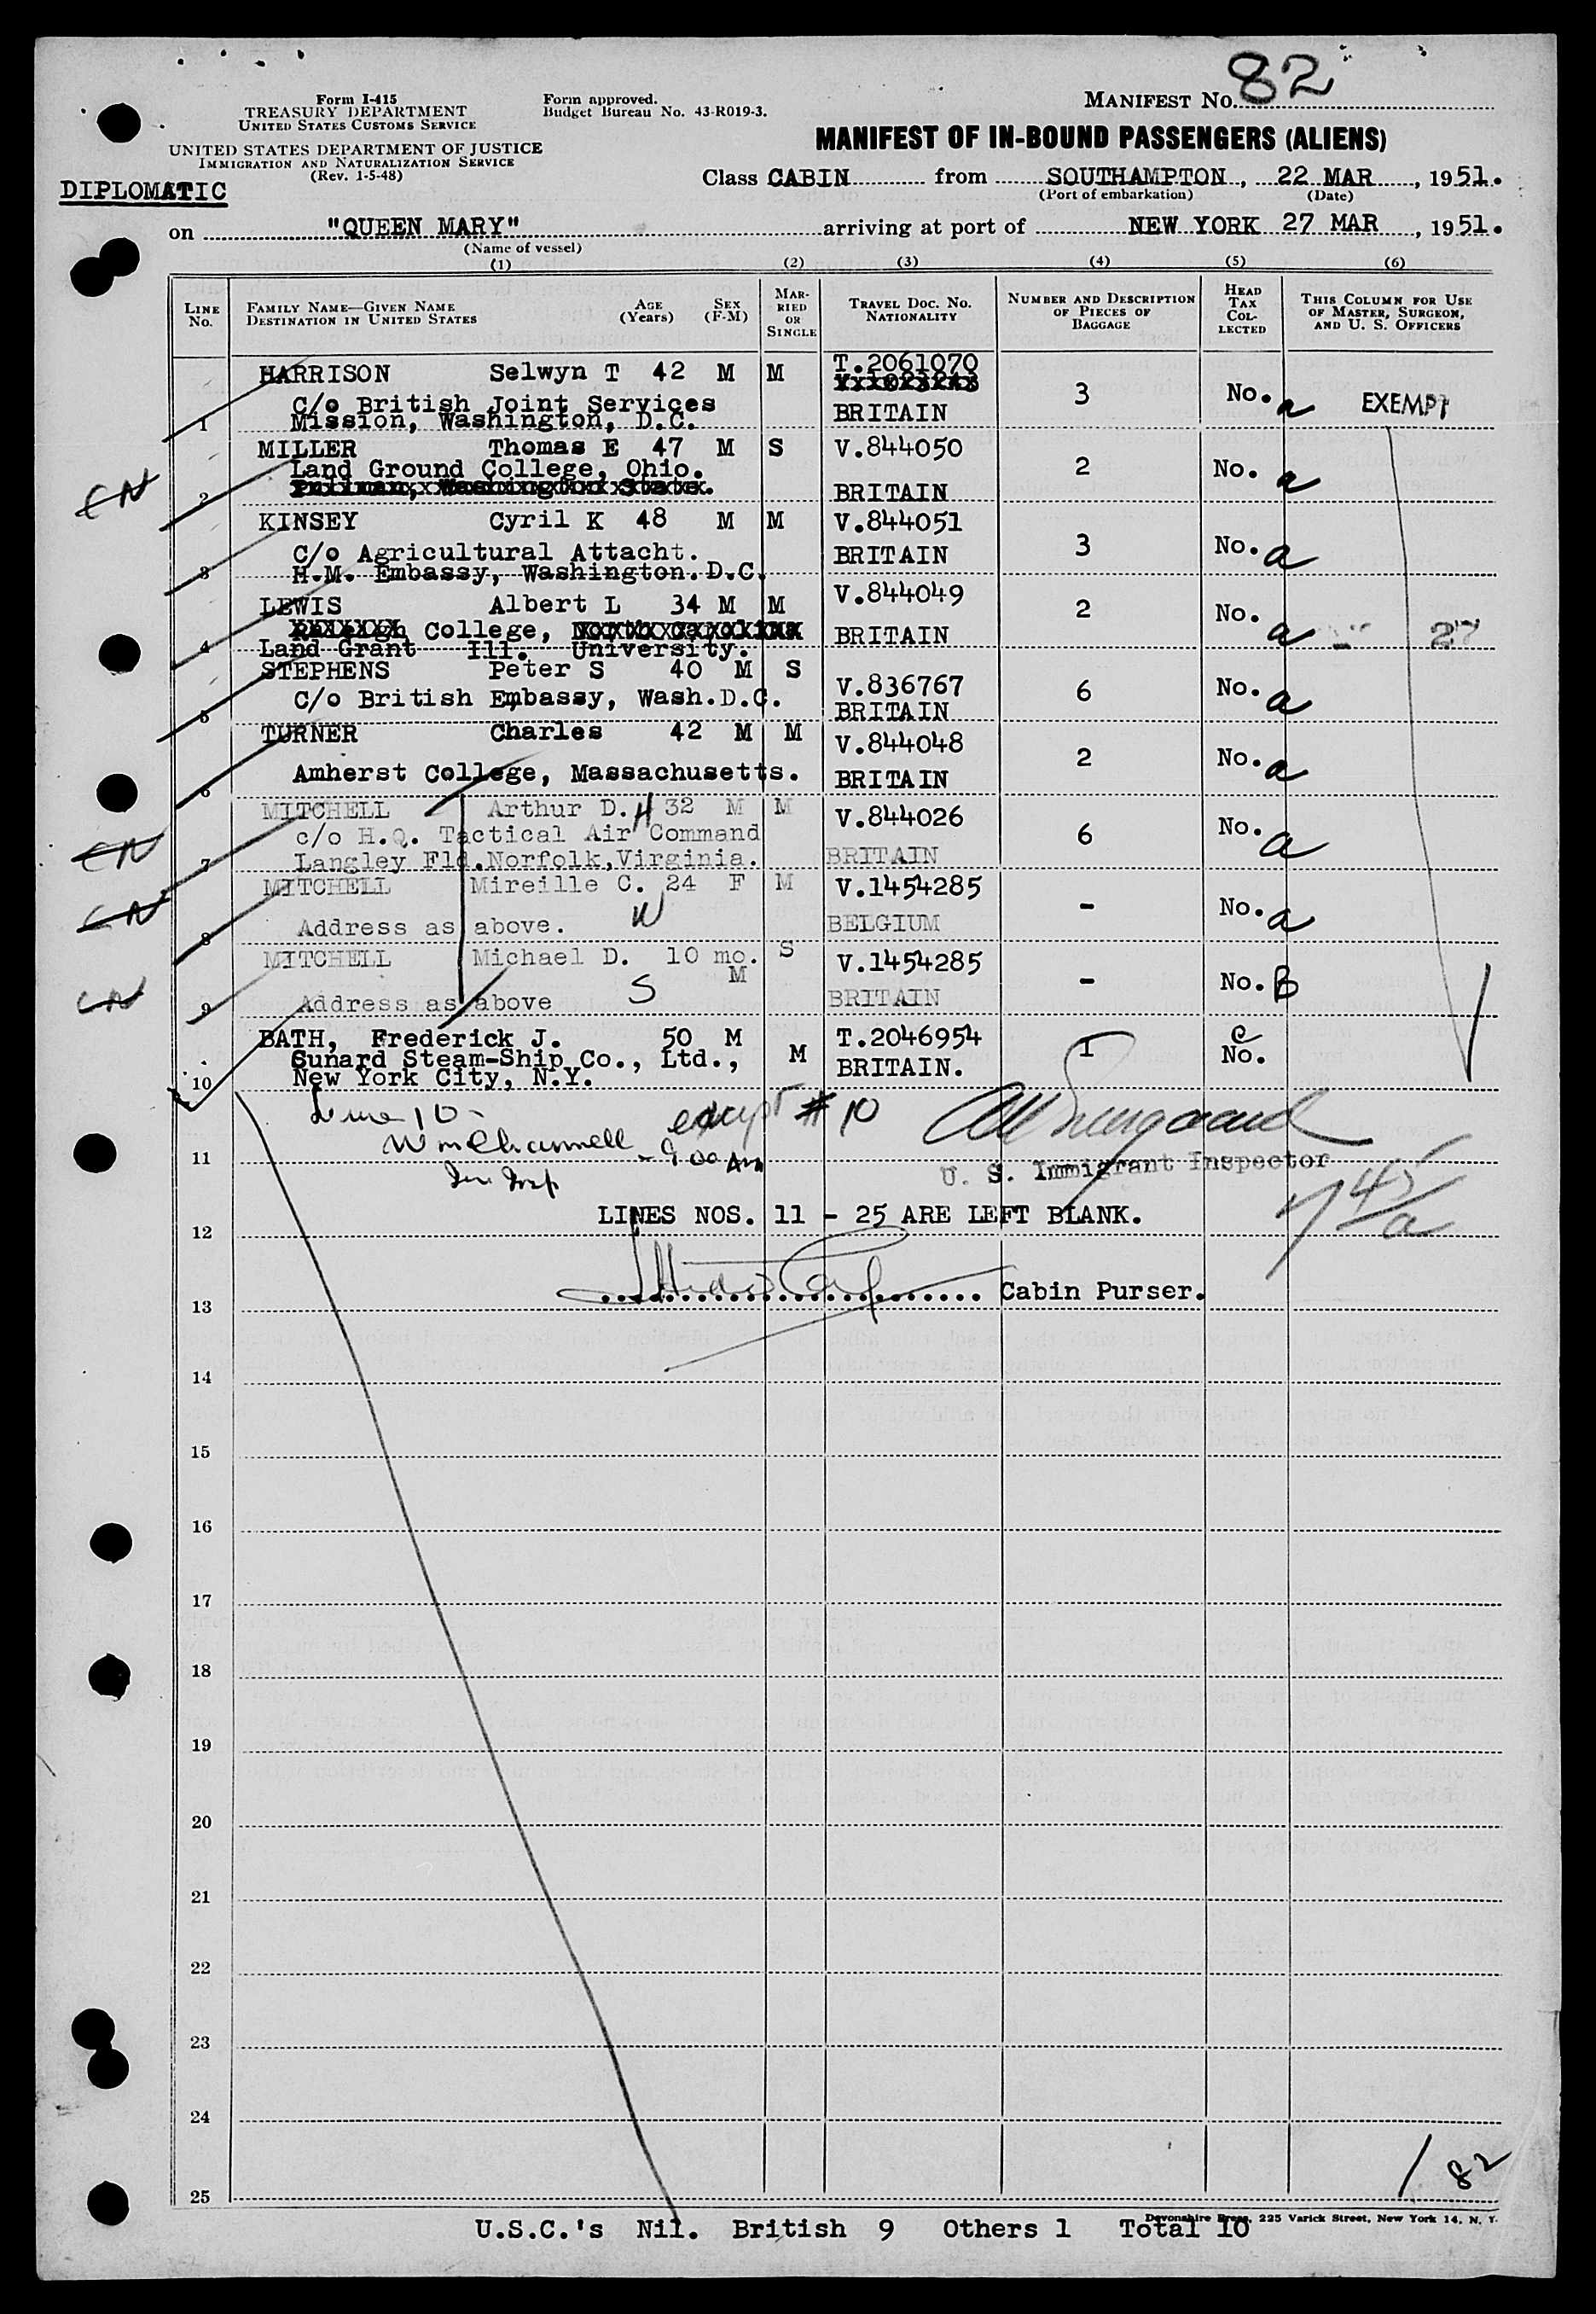 82
Form I-415
TREASURY DEPARTMENT
UNITED STATES CUSTOMS SERVICE
UNITED STATES DEPARTMENT OF JUSTICE
IMMIGRATION AND NATURALIZATION SERVICE
(Rev. 1-5-48)
Form approved.
Budget Bureau No. 43-R019-3.
MANIFEST No.
MANIFEST OF IN-BOUND PASSENGERS (ALIENS)
DIPLOMATIC
Class CABIN from SOUTHAMPTON, 22 MAR, 1951.
(Port of embarkation) (Date)
on "QUEEN MARY" arriving at port of NEW YORK 27 MAR, 1951.
(Name of vessel)
(1) (2) (3) (4) (5) (6)
LINE No.
FAMILY NAME—GIVEN NAME
DESTINATION IN UNITED STATES
AGE (Years)
SEX (F-M)
MARRIED OR SINGLE
TRAVEL DOC. No. NATIONALITY
NUMBER AND DESCRIPTION OF PIECES OF BAGGAGE
HEAD TAX COLLECTED
THIS COLUMN FOR USE OF MASTER, SURGEON, AND U. S. OFFICERS
1 HARRISON Selwyn T 42 M M T.2061070 3 No. a EXEMPT
C/o British Joint Services BRITAIN
Mission, Washington, D.C.
2 MILLER Thomas E 47 M S V.844050 2 No. a
Land Ground College, Ohio.
Pullman, Washington State. BRITAIN
3 KINSEY Cyril K 48 M M V.844051 3 No. a
C/o Agricultural Attacht. BRITAIN
H.M. Embassy, Washington. D.C.
4 LEWIS Albert L 34 M M V.844049 2 No. a 27
Raleigh College, North Carolina BRITAIN
Land Grant Ill. University.
5 STEPHENS Peter S 40 M S V.836767 6 No. a
C/o British Embassy, Wash.D.C. BRITAIN
6 TURNER Charles 42 M M V.844048 2 No. a
Amherst College, Massachusetts. BRITAIN
7 MITCHELL Arthur D. H 32 M M V.844026 6 No. a
c/o H.Q. Tactical Air Command
Langley Fld.Norfolk,Virginia. BRITAIN
8 MITCHELL Mireille C. 24 F M V.1454285 - No. a
Address as above. W BELGIUM
9 MITCHELL Michael D. 10 mo. M S V.1454285 - No. B
Address as above S BRITAIN
10 BATH, Frederick J. 50 M M T.2046954 1 No. c
Cunard Steam-Ship Co., Ltd., BRITAIN.
New York City, N.Y.
Line 10 -
except # 10
9 00 AM
11
U. S. Immigrant Inspector
LINES NOS. 11 - 25 ARE LEFT BLANK.
12
Cabin Purser.
13
14
15
16
17
18
19
20
21
22
23
24
25
82
U.S.C.'s Nil. British 9 Others 1 Total 10
Devonshire Press, 225 Varick Street, New York 14, N. Y.